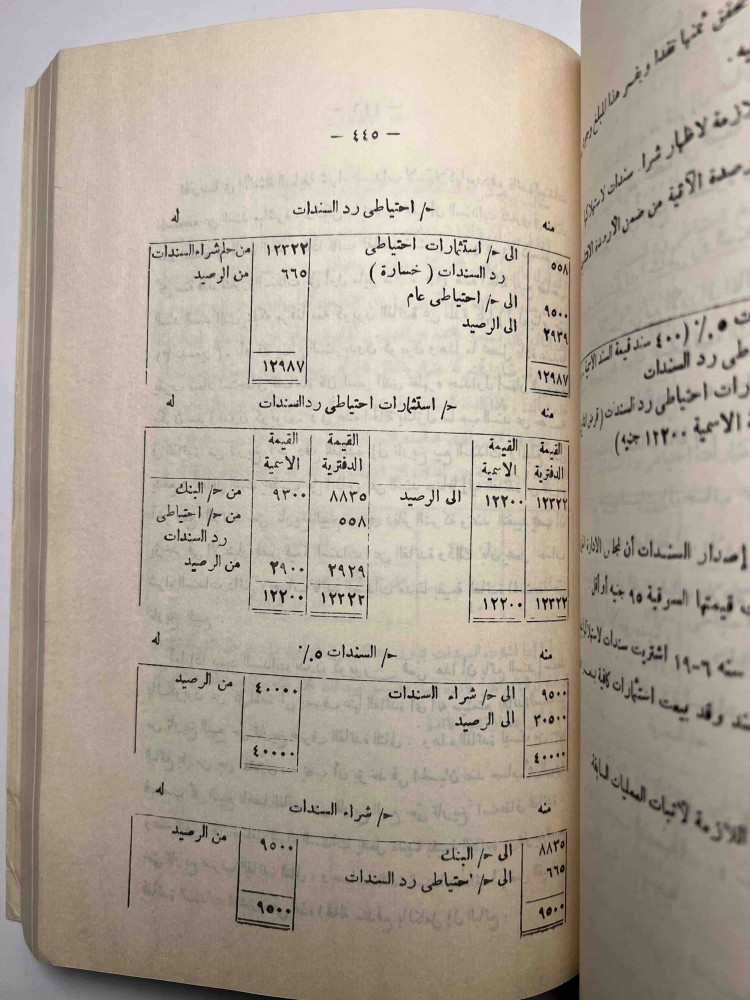 — ٤٤٥ —
منه ح/ احتياطى رد السندات له
٥٥٨ الى ح/ استثمارات احتياطى ١٢٣٢٢ من ح/م شراء السندات
رد السندات ( خسارة ) ٦٦٥ من الرصيد
٩٥٠٠ الى ح/ احتياطى عام
٢٩٣٩ الى الرصيد
١٢٩٨٧ ١٢٩٨٧
منه ح/ استثمارات احتياطى رد السندات له
القيمة القيمة القيمة القيمة
الدفترية الاسمية الدفترية الاسمية
١٢٣٢٢ ١٢٢٠٠ الى الرصيد ٨٨٣٥ ٩٣٠٠ من ح/ البنك
٥٥٨ من ح/ احتياطى
رد السندات
٢٩٢٩ ٢٩٠٠ من الرصيد
١٢٣٢٢ ١٢٢٠٠ ١٢٢٢٢ ١٢٢٠٠
منه ح/ السندات ٥٪ له
٩٥٠٠ الى ح/ شراء السندات ٤٠٠٠٠ من الرصيد
٣٠٥٠٠ الى الرصيد
٤٠٠٠٠ ٤٠٠٠٠
منه ح/ شراء السندات له
٨٨٣٥ الى ح/ البنك ٩٥٠٠ من الرصيد
٦٦٥ الى ح/ احتياطى رد السندات
٩٥٠٠ ٩٥٠٠
نقدا و يخسر هذا المبلغ
لازمة لاظهار شراء سندات
رصدة الآتية من ضمن الأرصدة
ت ٥٪ (٤٠٠ سند قيمة السند
طى رد السندات
ارات احتياطى رد السندات
ة الاسمية ١٢٢٠٠ جنيه)
إصدار السندات أن لمجلس الادارة
قيمتها السوقية ٩٥ جنيه أو أقل
سنه ٦-١٩ اشتريت سندات
ند وقد بيعت استثمارات كافية
اللازمة لاثبات العمليات السابقة